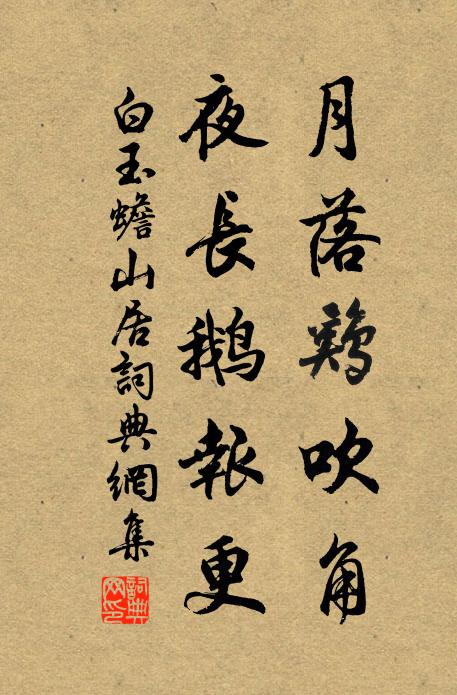 月落鷄吹角
夜長鵝報更
白玉蟾山居詞典網集
詞典網印